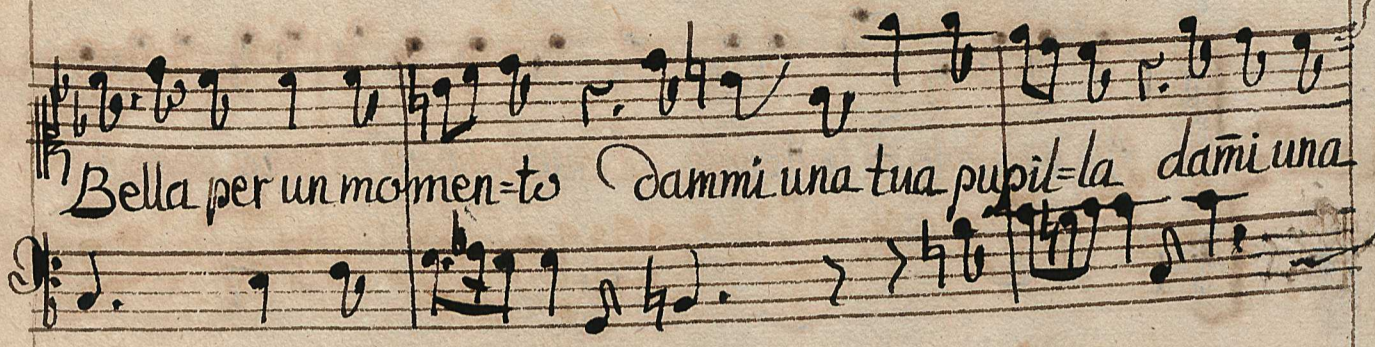 Bella per un momen=to dammi una tua pupil=la dam̄i una